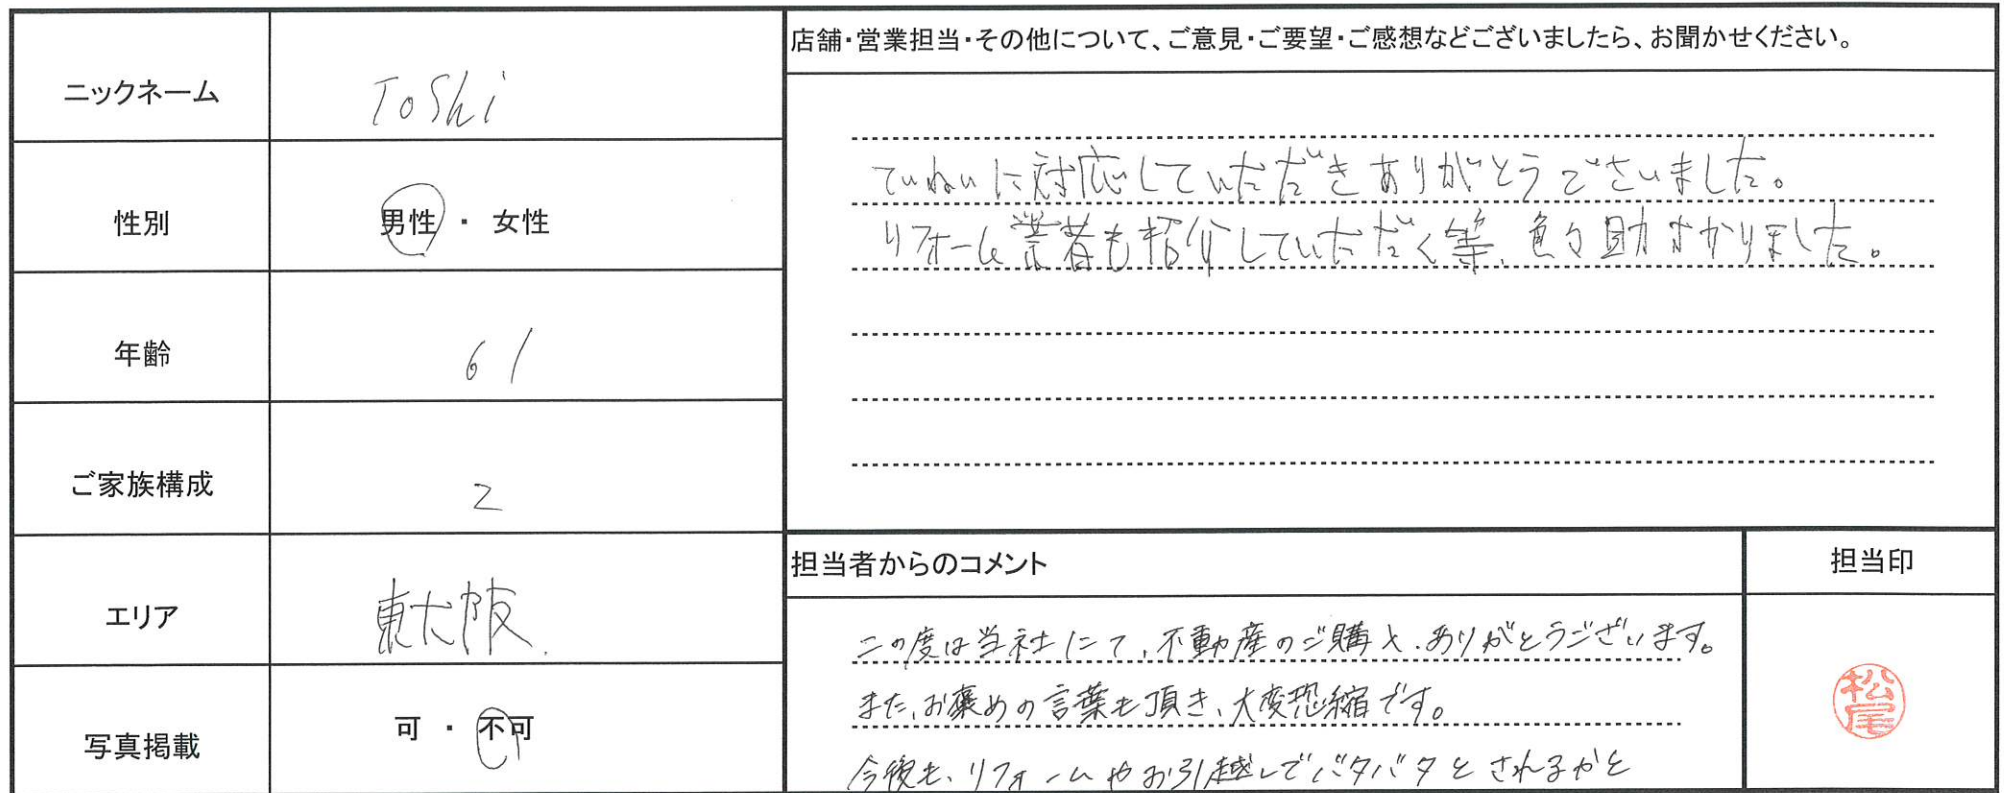 ニックネーム
Toshi
性別
男性 ・ 女性
年齢
61
ご家族構成
2
エリア
東大阪.
写真掲載
可 ・ 不可
店舗・営業担当・その他について、ご意見・ご要望・ご感想などございましたら、お聞かせください。
ていねいに対応していただきありがとうございました。
リフォーム業者も紹介していただく等、色々助かりました。
担当者からのコメント
この度は当社にて、不動産のご購入、ありがとうございます。
また、お褒めの言葉も頂き、大変恐縮です。
今後も、リフォームやお引越しでバタバタとされるかと
担当印
松尾